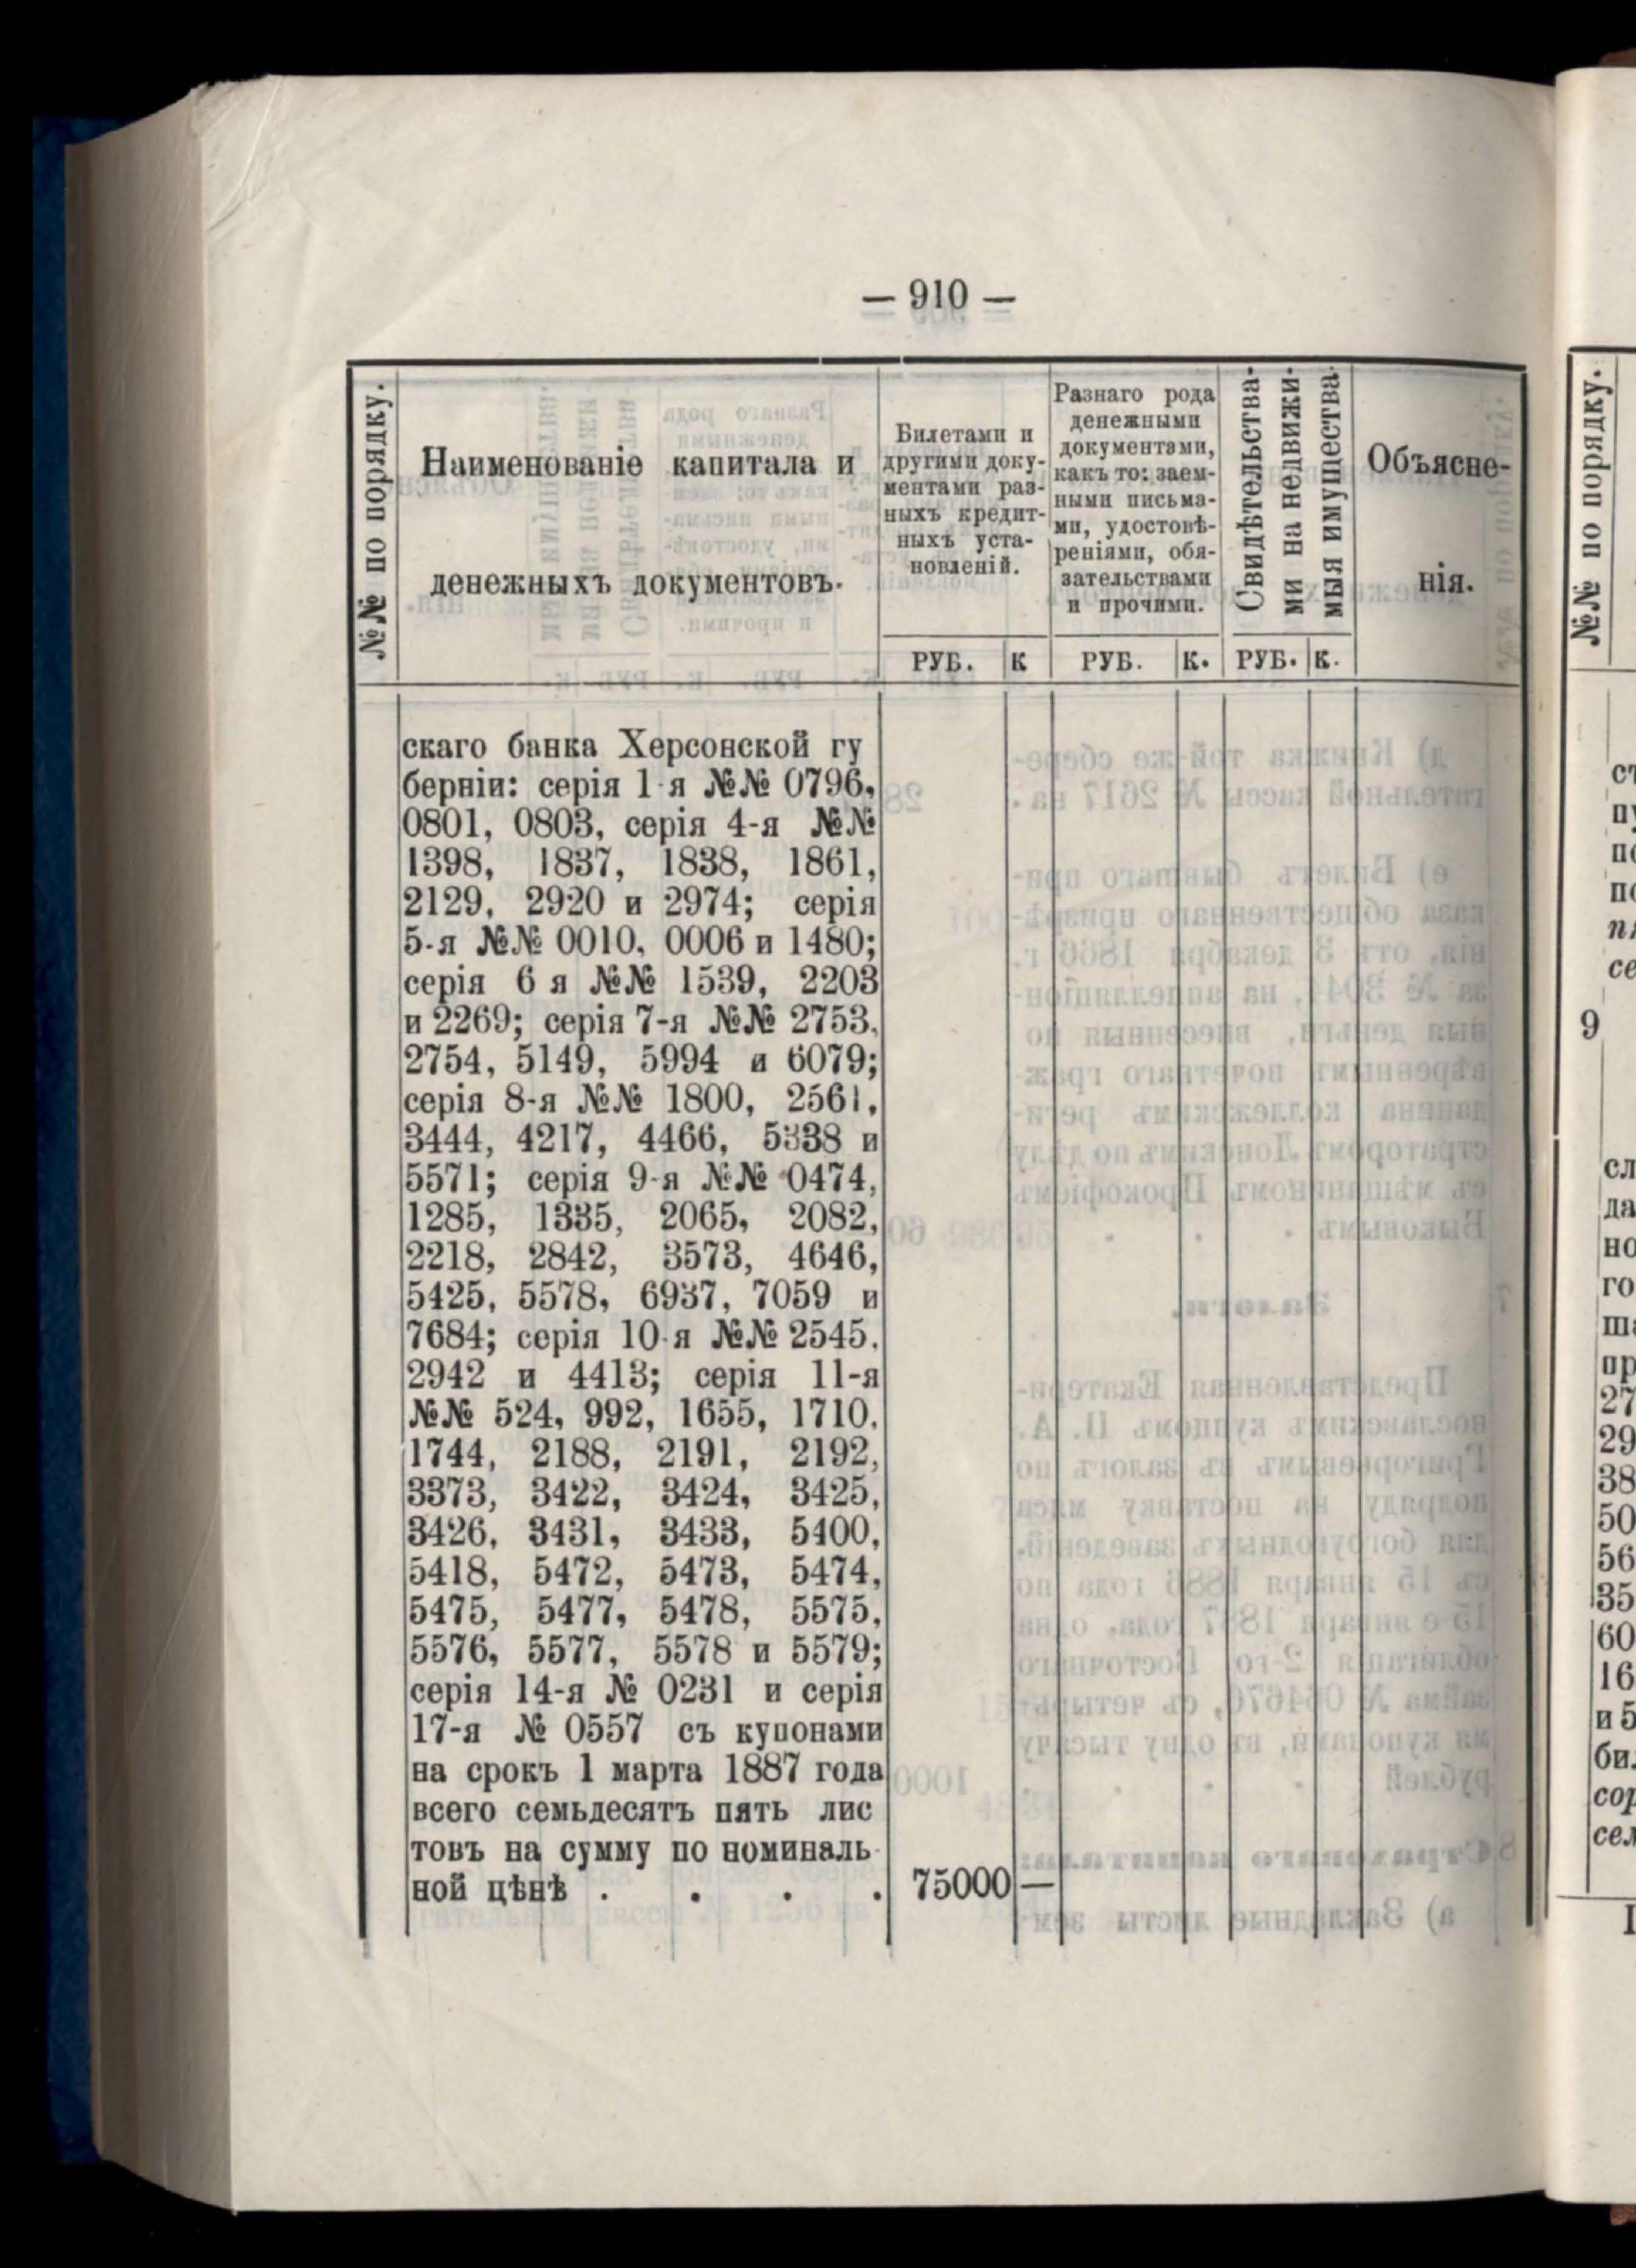 — 910 —
№№ по порядку.
Наименованіе капитала и
денежныхъ документовъ.
Билетами и
другими доку-
ментами раз-
ныхъ кредит-
ныхъ уста-
новленій.
Разнаго рода
денежными
документами,
какъ то: заем-
ными письма-
ми, удостовѣ-
реніями, обя-
зательствами
и прочими.
Свидѣтельства-
ми на недвижи-
мыя имущества.
Объясне-
нія.
РУБ. К РУБ. К. РУБ. К.
скаго банка Херсонской гу
берніи: серія 1-я №№ 0796,
0801, 0803, серія 4-я №№
1398, 1837, 1838, 1861,
2129, 2920 и 2974; серія
5-я №№ 0010, 0006 и 1480;
серія 6 я №№ 1539, 2203
и 2269; серія 7-я №№ 2753,
2754, 5149, 5994 и 6079;
серія 8-я №№ 1800, 2561,
3444, 4217, 4466, 5338 и
5571; серія 9-я №№ 0474,
1285, 1335, 2065, 2082,
2218, 2842, 3573, 4646,
5425, 5578, 6937, 7059 и
7684; серія 10-я №№ 2545,
2942 и 4413; серія 11-я
№№ 524, 992, 1655, 1710,
1744, 2188, 2191, 2192,
3373, 3422, 3424, 3425,
3426, 3431, 3433, 5400,
5418, 5472, 5473, 5474,
5475, 5477, 5478, 5575,
5576, 5577, 5578 и 5579;
серія 14-я № 0231 и серія
17-я № 0557 съ купонами
на срокъ 1 марта 1887 года
всего семьдесятъ пять лис
товъ на сумму по номиналь
ной цѣнѣ . . . . 75000 —
№№ по порядку.
9